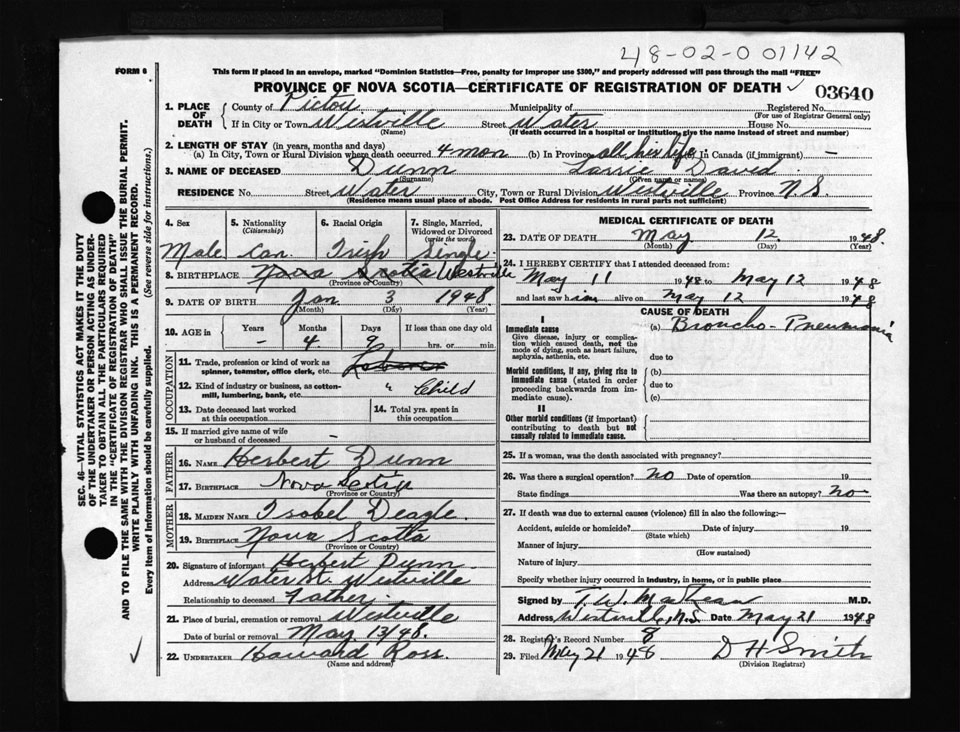 48-02-0 01142
FORM 6
This form if placed in an envelope, marked "Dominion Statistics—Free, penalty for improper use $300," and properly addressed will pass through the mail "FREE"
PROVINCE OF NOVA SCOTIA—CERTIFICATE OF REGISTRATION OF DEATH ✓ 03640
SEC. 46—VITAL STATISTICS ACT MAKES IT THE DUTY
OF THE UNDERTAKER OR PERSON ACTING AS UNDER-
TAKER TO OBTAIN ALL THE PARTICULARS REQUIRED
IN THE "CERTIFICATE OF REGISTRATION OF DEATH"
AND TO FILE THE SAME WITH THE DIVISION REGISTRAR WHO SHALL ISSUE THE BURIAL PERMIT.
WRITE PLAINLY WITH UNFADING INK. THIS IS A PERMANENT RECORD.
Every item of Information should be carefully supplied. (See reverse side for instructions.)
1. PLACE OF DEATH
County of Pictou Municipality of Registered No.
(For use of Registrar General only)
If in City or Town Westville Street Water House No.
(Name) (If death occurred in a hospital or institution, give the name instead of street and number)
2. LENGTH OF STAY (in years, months and days)
(a) In City, Town or Rural Division where death occurred 4 mon (b) In Province all his life (c) In Canada (if immigrant) —
3. NAME OF DECEASED Dunn Larrie David
(Surname) (Given name or names)
RESIDENCE No. Street Water City, Town or Rural Division Westville Province N.S.
(Residence means usual place of abode. Post Office Address for residents in rural parts not sufficient)
4. Sex Male
5. Nationality (Citizenship) Can
6. Racial Origin Irish
7. Single, Married, Widowed or Divorced (write the word) Single
8. BIRTHPLACE Nova Scotia Westville
(Province or Country)
9. DATE OF BIRTH Jan. 3 1948.
(Month) (Day) (Year)
10. AGE in Years Months Days If less than one day old
– 4 9 hrs. or min.
OCCUPATION
11. Trade, profession or kind of work as spinner, teamster, office clerk, etc. Laborer
12. Kind of industry or business, as cotton-mill, lumbering, bank, etc. " Child
13. Date deceased last worked at this occupation
14. Total yrs. spent in this occupation
15. If married give name of wife or husband of deceased –
FATHER
16. NAME Herbert Dunn
17. BIRTHPLACE Nova Scotia
(Province or Country)
MOTHER
18. MAIDEN NAME Isobel Deagle.
19. BIRTHPLACE Nova Scotia
(Province or Country)
20. Signature of informant Herbert Dunn
Address Water St. Westville
Relationship to deceased Father.
21. Place of burial, cremation or removal Westville
Date of burial or removal May 13/48.
22. UNDERTAKER Howard Ross.
(Name and address)
MEDICAL CERTIFICATE OF DEATH
23. DATE OF DEATH May 12 1948.
(Month) (Day)
24. I HEREBY CERTIFY that I attended deceased from:
May 11 1948 to May 12 1948
and last saw him alive on May 12 1948
CAUSE OF DEATH
I
Immediate cause (a) Broncho-Pneumonia
Give disease, injury or complication which caused death, not the mode of dying, such as heart failure, asphyxia, asthenia, etc. due to
Morbid conditions, if any, giving rise to immediate cause (stated in order proceeding backwards from immediate cause). (b)
due to
(c)
II
Other morbid conditions (if important) contributing to death but not causally related to immediate cause.
25. If a woman, was the death associated with pregnancy?
26. Was there a surgical operation? No Date of operation 19
State findings Was there an autopsy? No
27. If death was due to external causes (violence) fill in also the following:—
Accident, suicide or homicide? Date of injury 19
(State which)
Manner of injury
(How sustained)
Nature of injury
Specify whether injury occurred in industry, in home, or in public place
Signed by T. W. MacLean M.D.
Address Westville, N.S. Date May 21 1948
28. Registrar's Record Number 8
29. Filed May 21 1948 D H Smith
(Division Registrar)